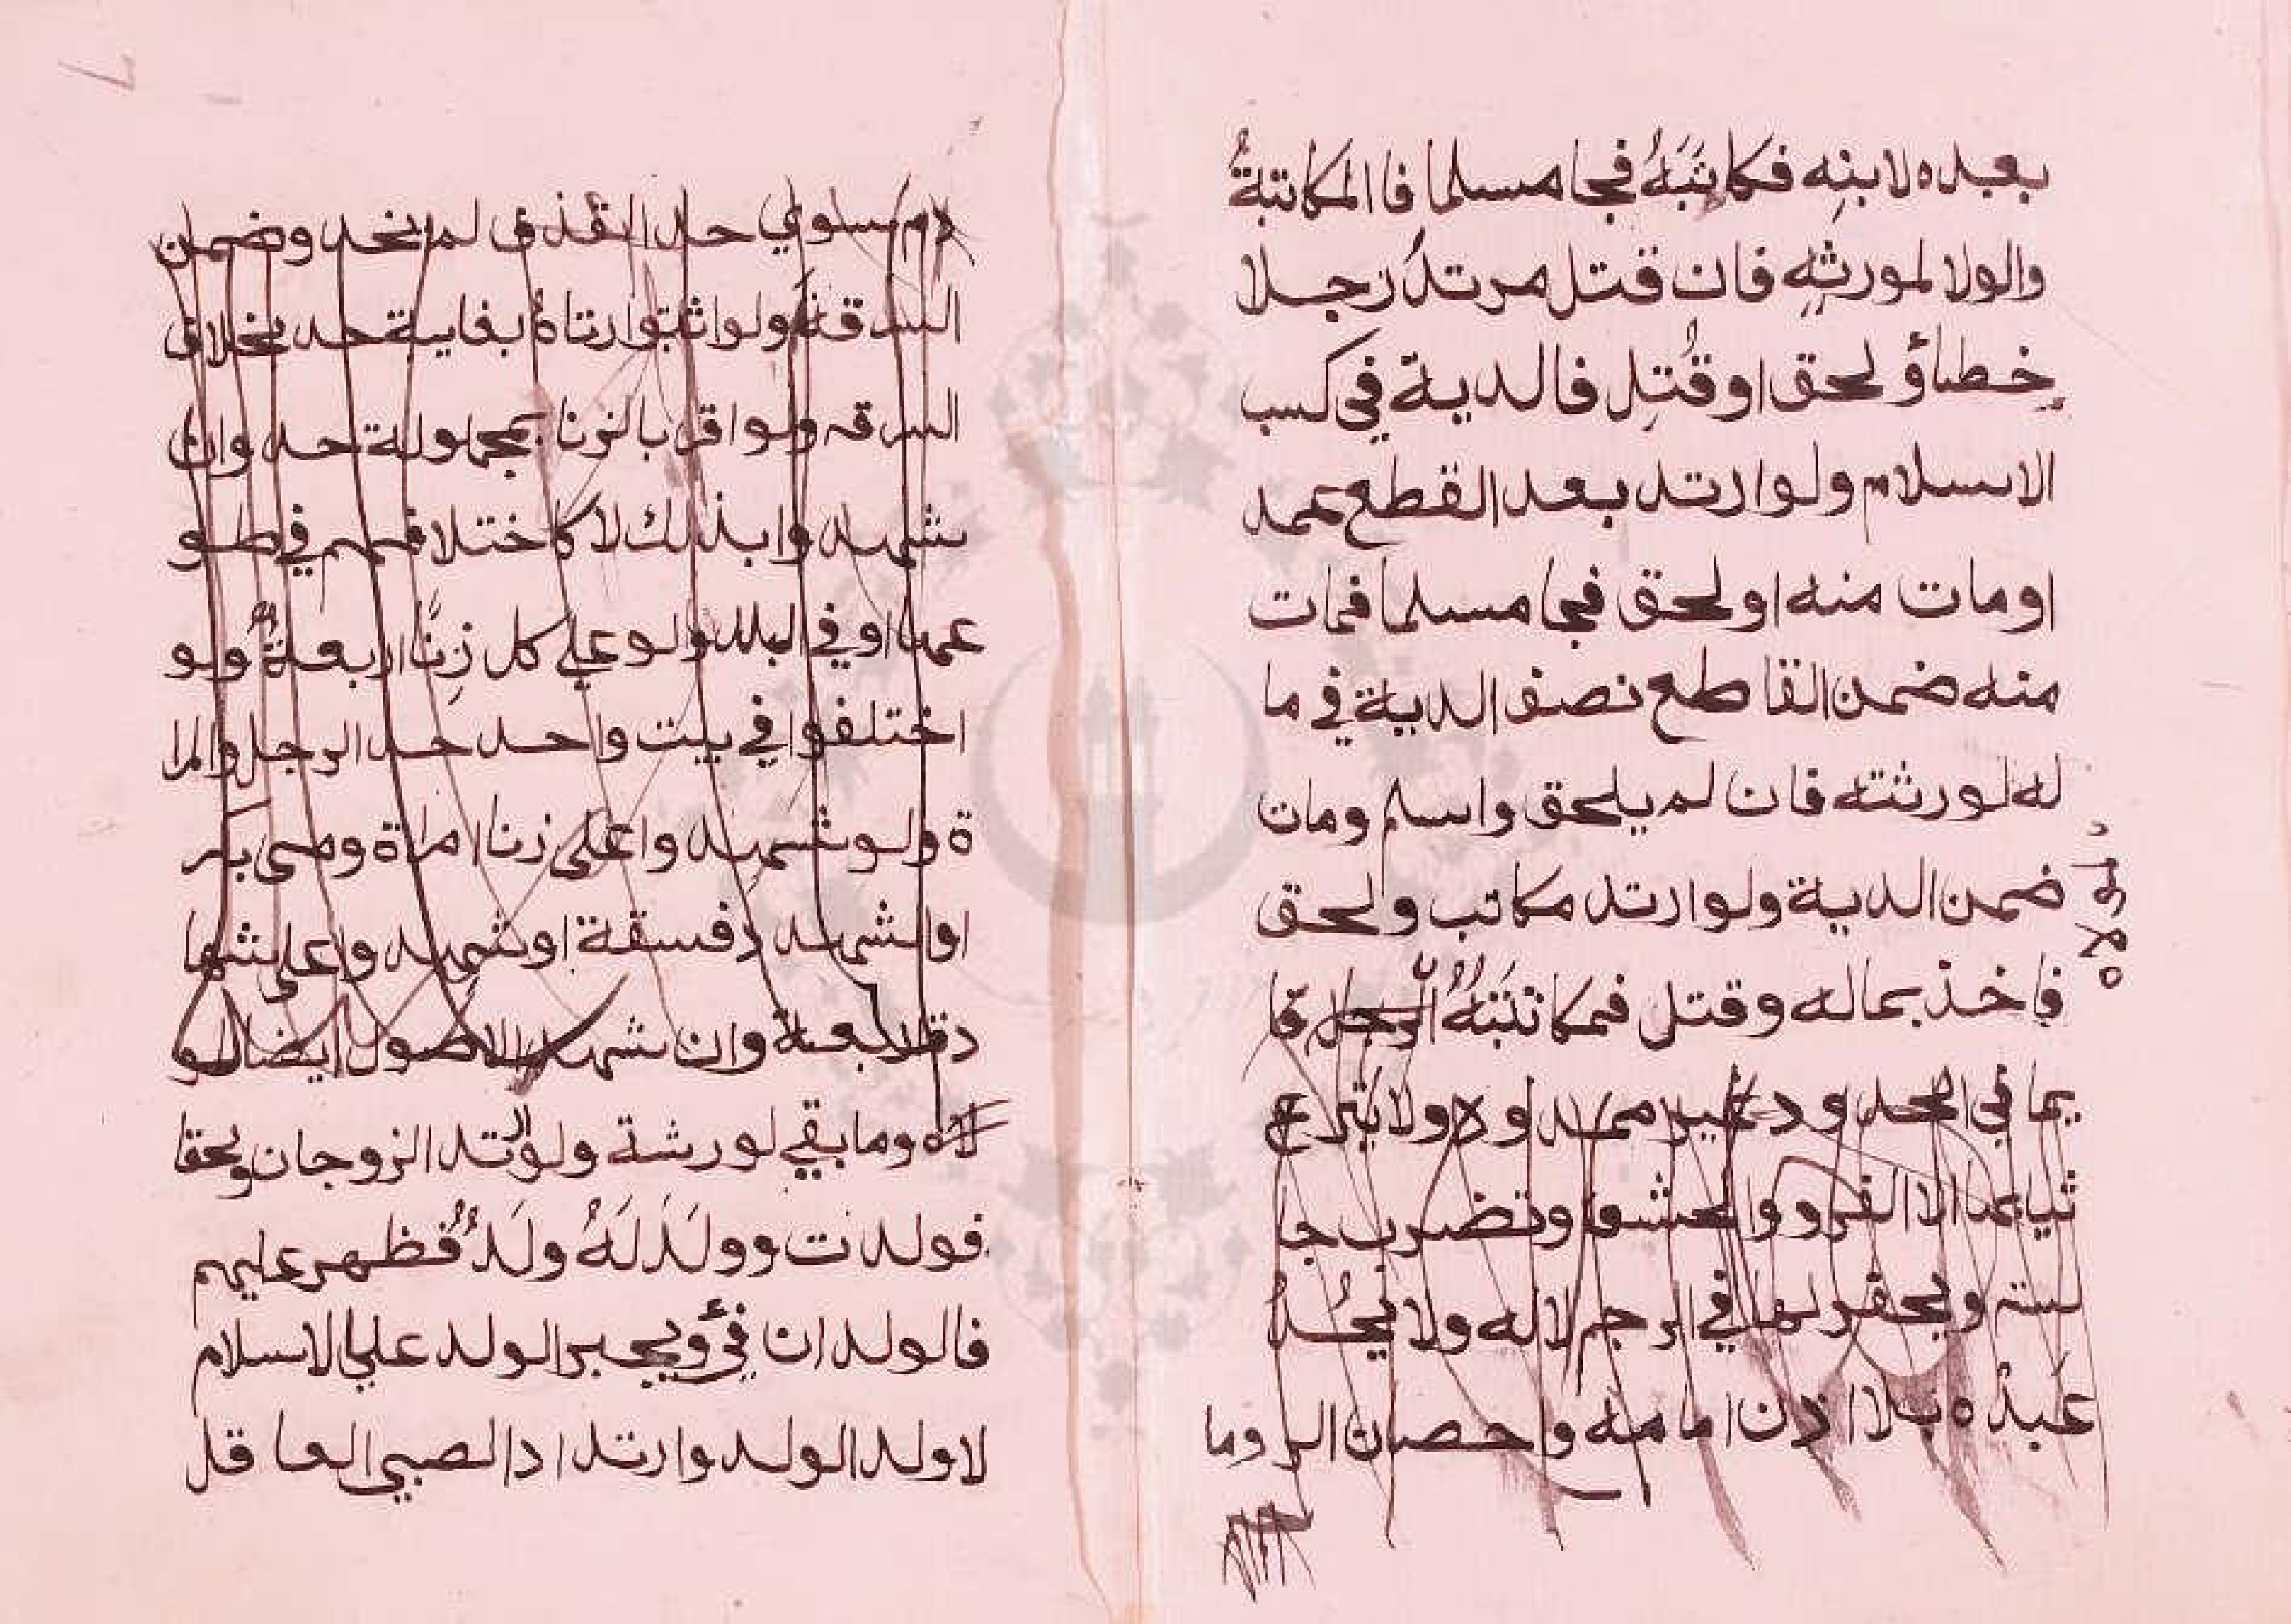 بعبده لابنه فكاتَبَهُ فجا مسلما فا المكاتبةُ
والولا لمورثِه فان قتل مرتدُ رجلا
خطاؤ لحق او قُتِل فالدية في كسب
الاسلام ولوارتد بعد القطع عمد
اومات منه اولحق فجا مسلما فمات
منه ضمن القاطع نصف الدية في ما
له لورثته فان لم يلحق واسلم ومات
ضمن الدية ولوارتد مكاتب ولحق
فاخذ بماله وقتل فمكاتبَتَهُ الرجل قا
يما في الحد و د غير ممدوده ولا ينزع
ثيابها الا الفرو والحشو وتضرب جا
لسته ويحفر لها في الرجم لا له ولا يَحُدُ
عَبدُه بلا اذن امامه واحصان الر وما
دم سلوي حد القذف لم يحد وضمن
السرقة ولو اثبتوا زناهُ بغايبة حد بخلاف
السرقه ولو اقر بالزنا بمجهولة حد وان
شهدوا بذلك لا كاختلافهم في طو
عها او في البلد ولو علي كل زِنًا اربعةٌ ولو
اختلفوا في بيت واحد حد الرجل والمرا
ة ولو شهدوا على زنا امراة وهى بكر
اوالشهد فسقة او شهدوا على شها
دة اربعة وان شهد الاصول ايضا لو
لاه ومابقي لورشة ولوارتد الزوجان ولحقا
فولدت وولَدَ لَهُ ولَدٌ فظهر عليهم
فالولدان فئ ويجبر الولد علي الاسلام
لاولد الولد وارتداد الصبي العاقل